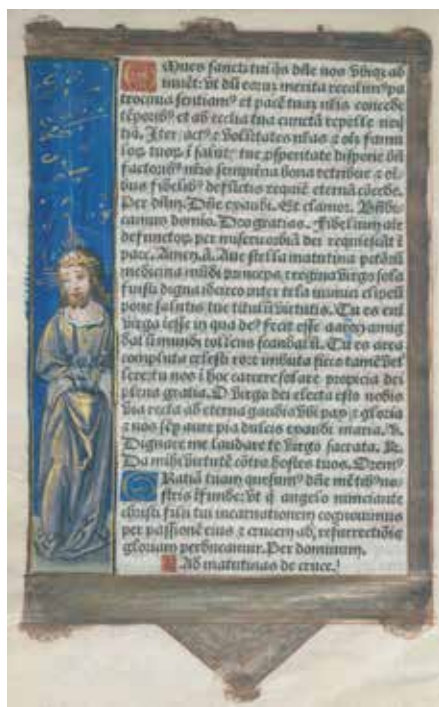 Omnes sancti tui q̄s dn̄e nos vbiqȝ ad
iuuēt: vt dū eorū merita recolim⁹ pa
trocinia sentiam⁹ et pacē tuā nr̄is concede
tēporib⁹ et ab ecclīa tua cunctā repelle neq
tiā. Iter act⁹ ⁊ volūtates nr̄as ⁊ oīm famu
loꝝ tuoꝝ ī salutꝭ tue ꝓsperitate dispone bn̄
factorib⁹ nr̄is sempitna bona retribue ⁊ oī
bus fidelib⁹ defūctis requiē eternā cōcede.
Per dn̄m. Dn̄e exaudi. Et clamor. Bn̄di-
camus domino. Deo gratias. Fidelium aīe
defunctoꝝ per misericordiā dei requiescāt ī
pace. Amen. ā. Aue stella matutina pctōꝝ
medicina mūdi princeps ⁊ regina virgo sola
fuisti digna idcirco inter tela inimici clipeū
pone salutis tue titulū virtutis. Tu es eni
virga iesse in qua de⁹ fecit esse aaron amig
dalū mundi tollens scandalū. Tu es area
compluta celesti rore imbuta sicco tamē vel
lere: tu nos ī hoc carcere solare propicia dei
plena gratia. O virgo dei electa esto nobis
via recta ad eterna gaudia vbi pax ⁊ gloria
⁊ nos sēp aure pia dulcis exaudi maria. v.
Dignare me laudare te virgo sacrata. R.
Da mihi virtutē cōtra hostes tuos. Orem⁹
Gratiā tuam quesum⁹ dn̄e mētib⁹ no-
stris īfunde: vt q̄ angelo nunciante
christi filii tui incarnationem cognouimus
per passionē eius ⁊ crucem ad resurrectiōis
gloriam perducamur. Per dominum.
Ad matutinas de cruce.